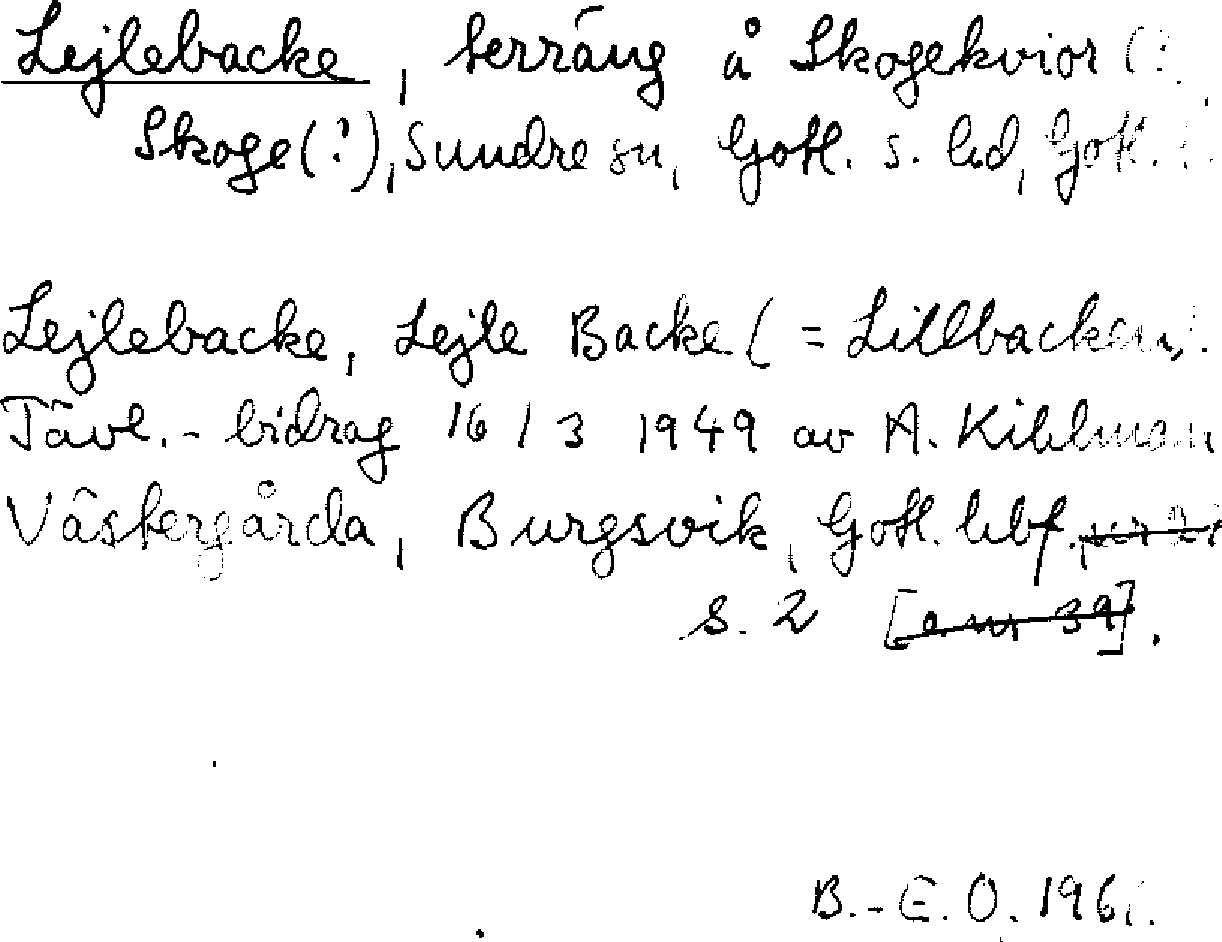 Lejlebacke, terräng å Skogekvior (?
Skoge(?), Sundre sn, Gotl. s. hd, Gotl. l.
Lejlebacke, Lejle Backe (= Lillbacken)
Tävl.-bidrag 16/3 1949 av A. Kihlman
Västergårda, Burgsvik, Gotl. hbf.
s. 2 [a nr 39].
B.-E.O. 196